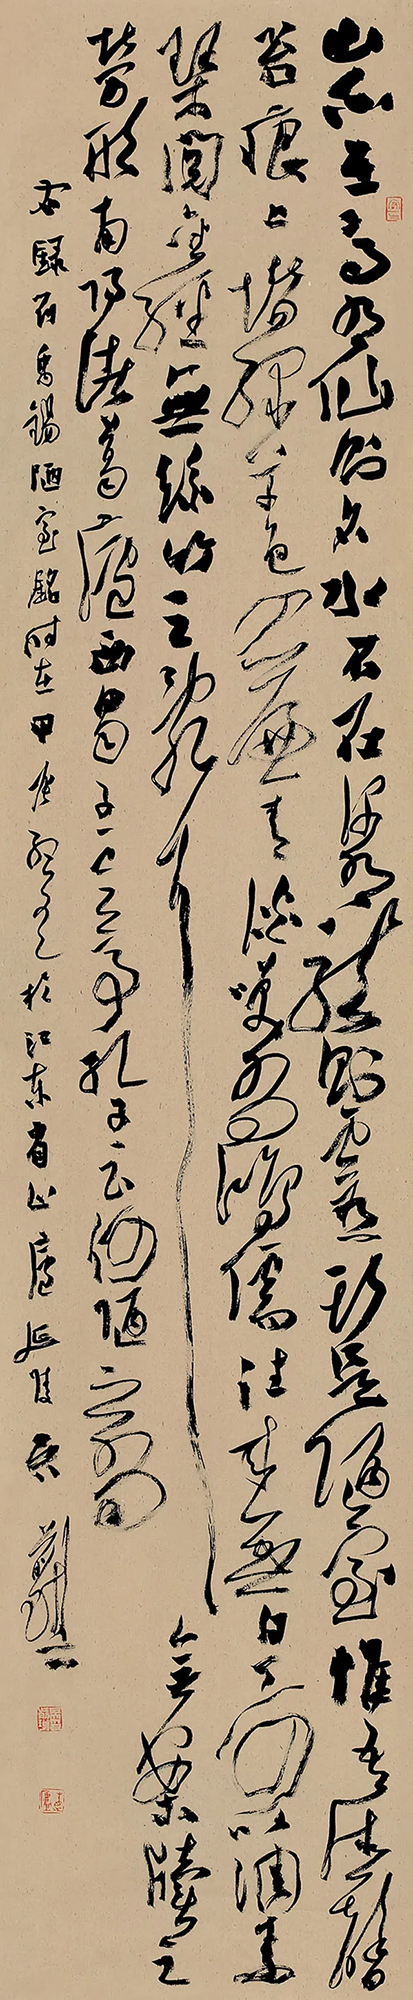 山不在高有仙則名水不在深有龍則靈斯是陋室惟吾德馨
苔痕上堦綠草色入簾青談笑有鴻儒往來無白丁可以調素
琴閱金經無絲竹之亂耳無案牘之
勞形南陽諸葛廬西蜀子雲亭孔子云何陋之有
右録劉禹錫陋室銘時在甲辰於江東省心廬延陵吴